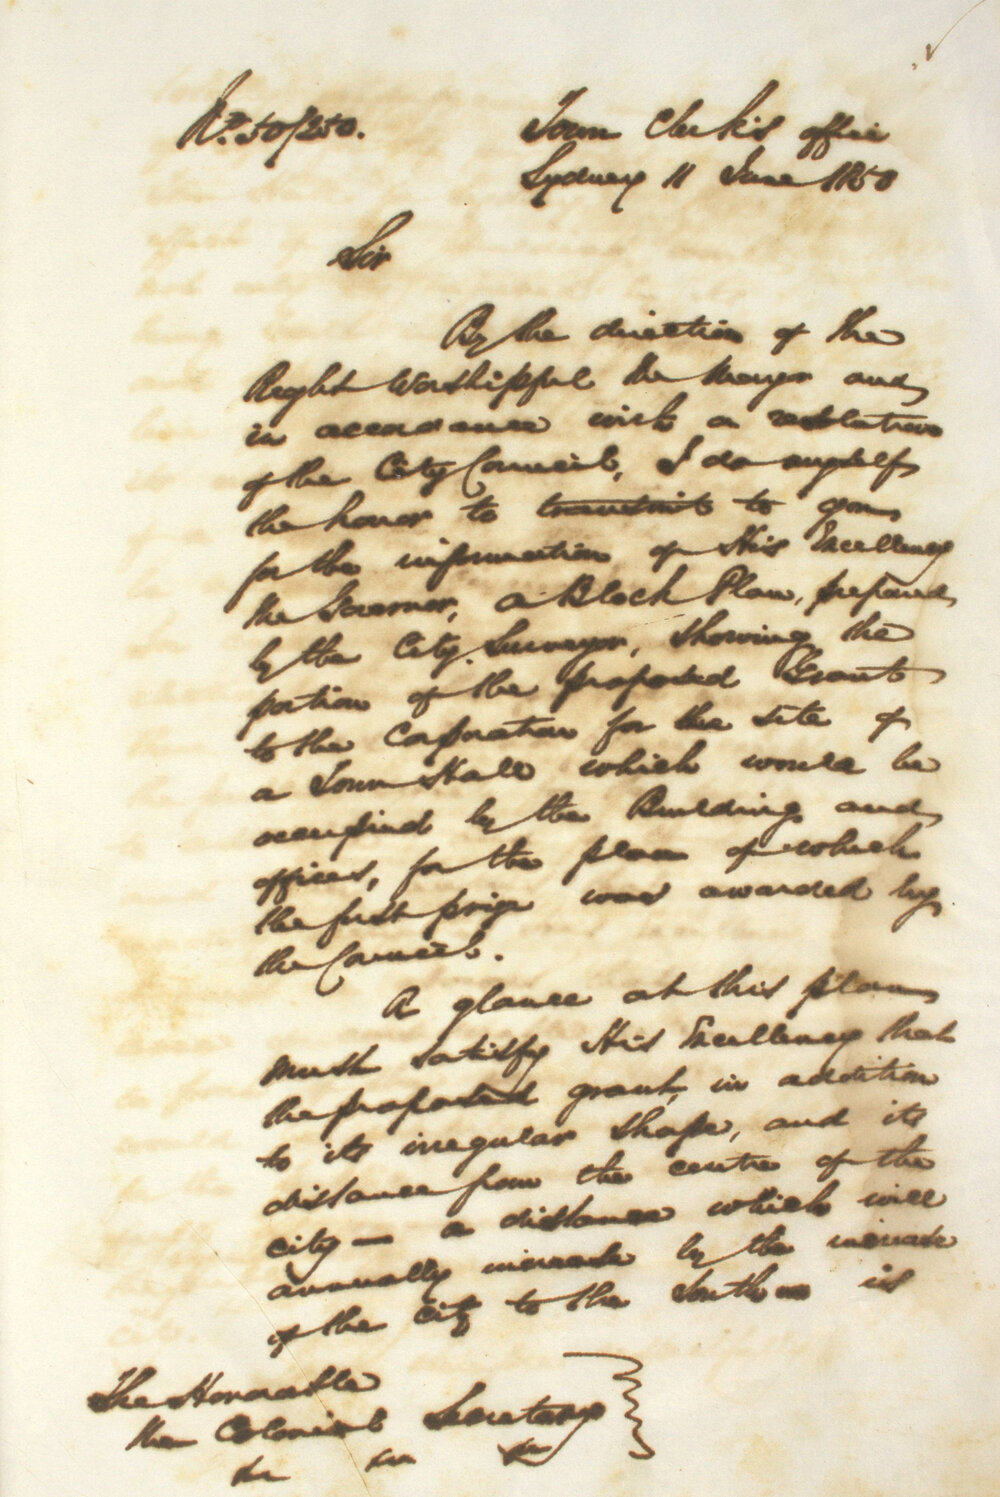 No. 50/250.
Town Clerk's office
Sydney 11 June 1850
Sir
By the direction of the
Right Worshipful the Mayor and
in accordance with a resolution
of the City Council, I do myself
the honor to transmit to you
for the information of His Excellency
the Governor, a Block Plan, prepared
by the City Surveyor, showing the
portion of the proposed Grant
to the Corporation for the site of
a Town Hall which would be
occupied by the Building and
offices, for the plan of which
the first prize was awarded by
the Council.
A glance at this plan
must satisfy His Excellency that
the proposed grant, in addition
to its irregular shape, and its
distance from the centre of the
city — a distance which will
annually increase by the increase
of the city to the Southern is
The Honorable
the Colonial Secretary